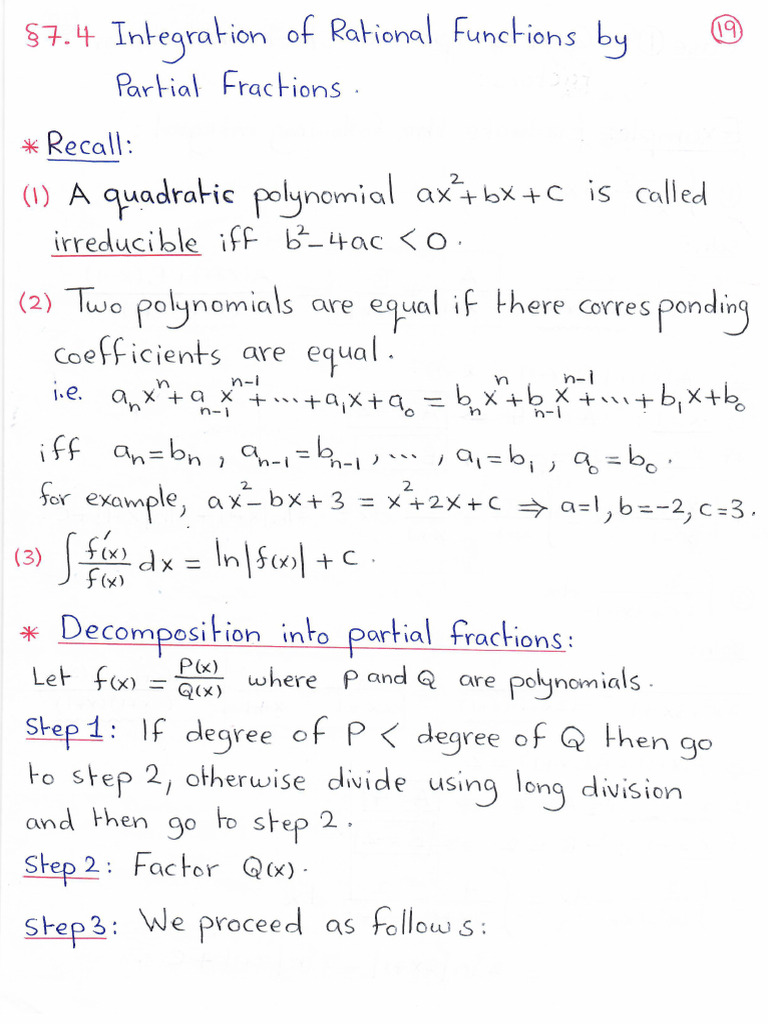 §7.4 Integration of Rational Functions by (19)
Partial Fractions.
* Recall:
(1) A quadratic polynomial ax²+bx+c is called
irreducible iff b²-4ac < 0.
(2) Two polynomials are equal if there corresponding
coefficients are equal.
i.e. aₙxⁿ+aₙ₋₁xⁿ⁻¹+...+a₁x+a₀ = bₙxⁿ+bₙ₋₁xⁿ⁻¹+...+b₁x+b₀
iff aₙ=bₙ, aₙ₋₁=bₙ₋₁, ..., a₁=b₁, a₀=b₀.
for example, ax²-bx+3 = x²+2x+c ⇒ a=1, b=-2, c=3.
(3) ∫ f′(x)/f(x) dx = ln|f(x)| + c.
* Decomposition into partial fractions:
Let f(x) = P(x)/Q(x) where P and Q are polynomials.
Step 1: If degree of P < degree of Q then go
to step 2, otherwise divide using long division
and then go to step 2.
Step 2: Factor Q(x).
Step 3: We proceed as follows: